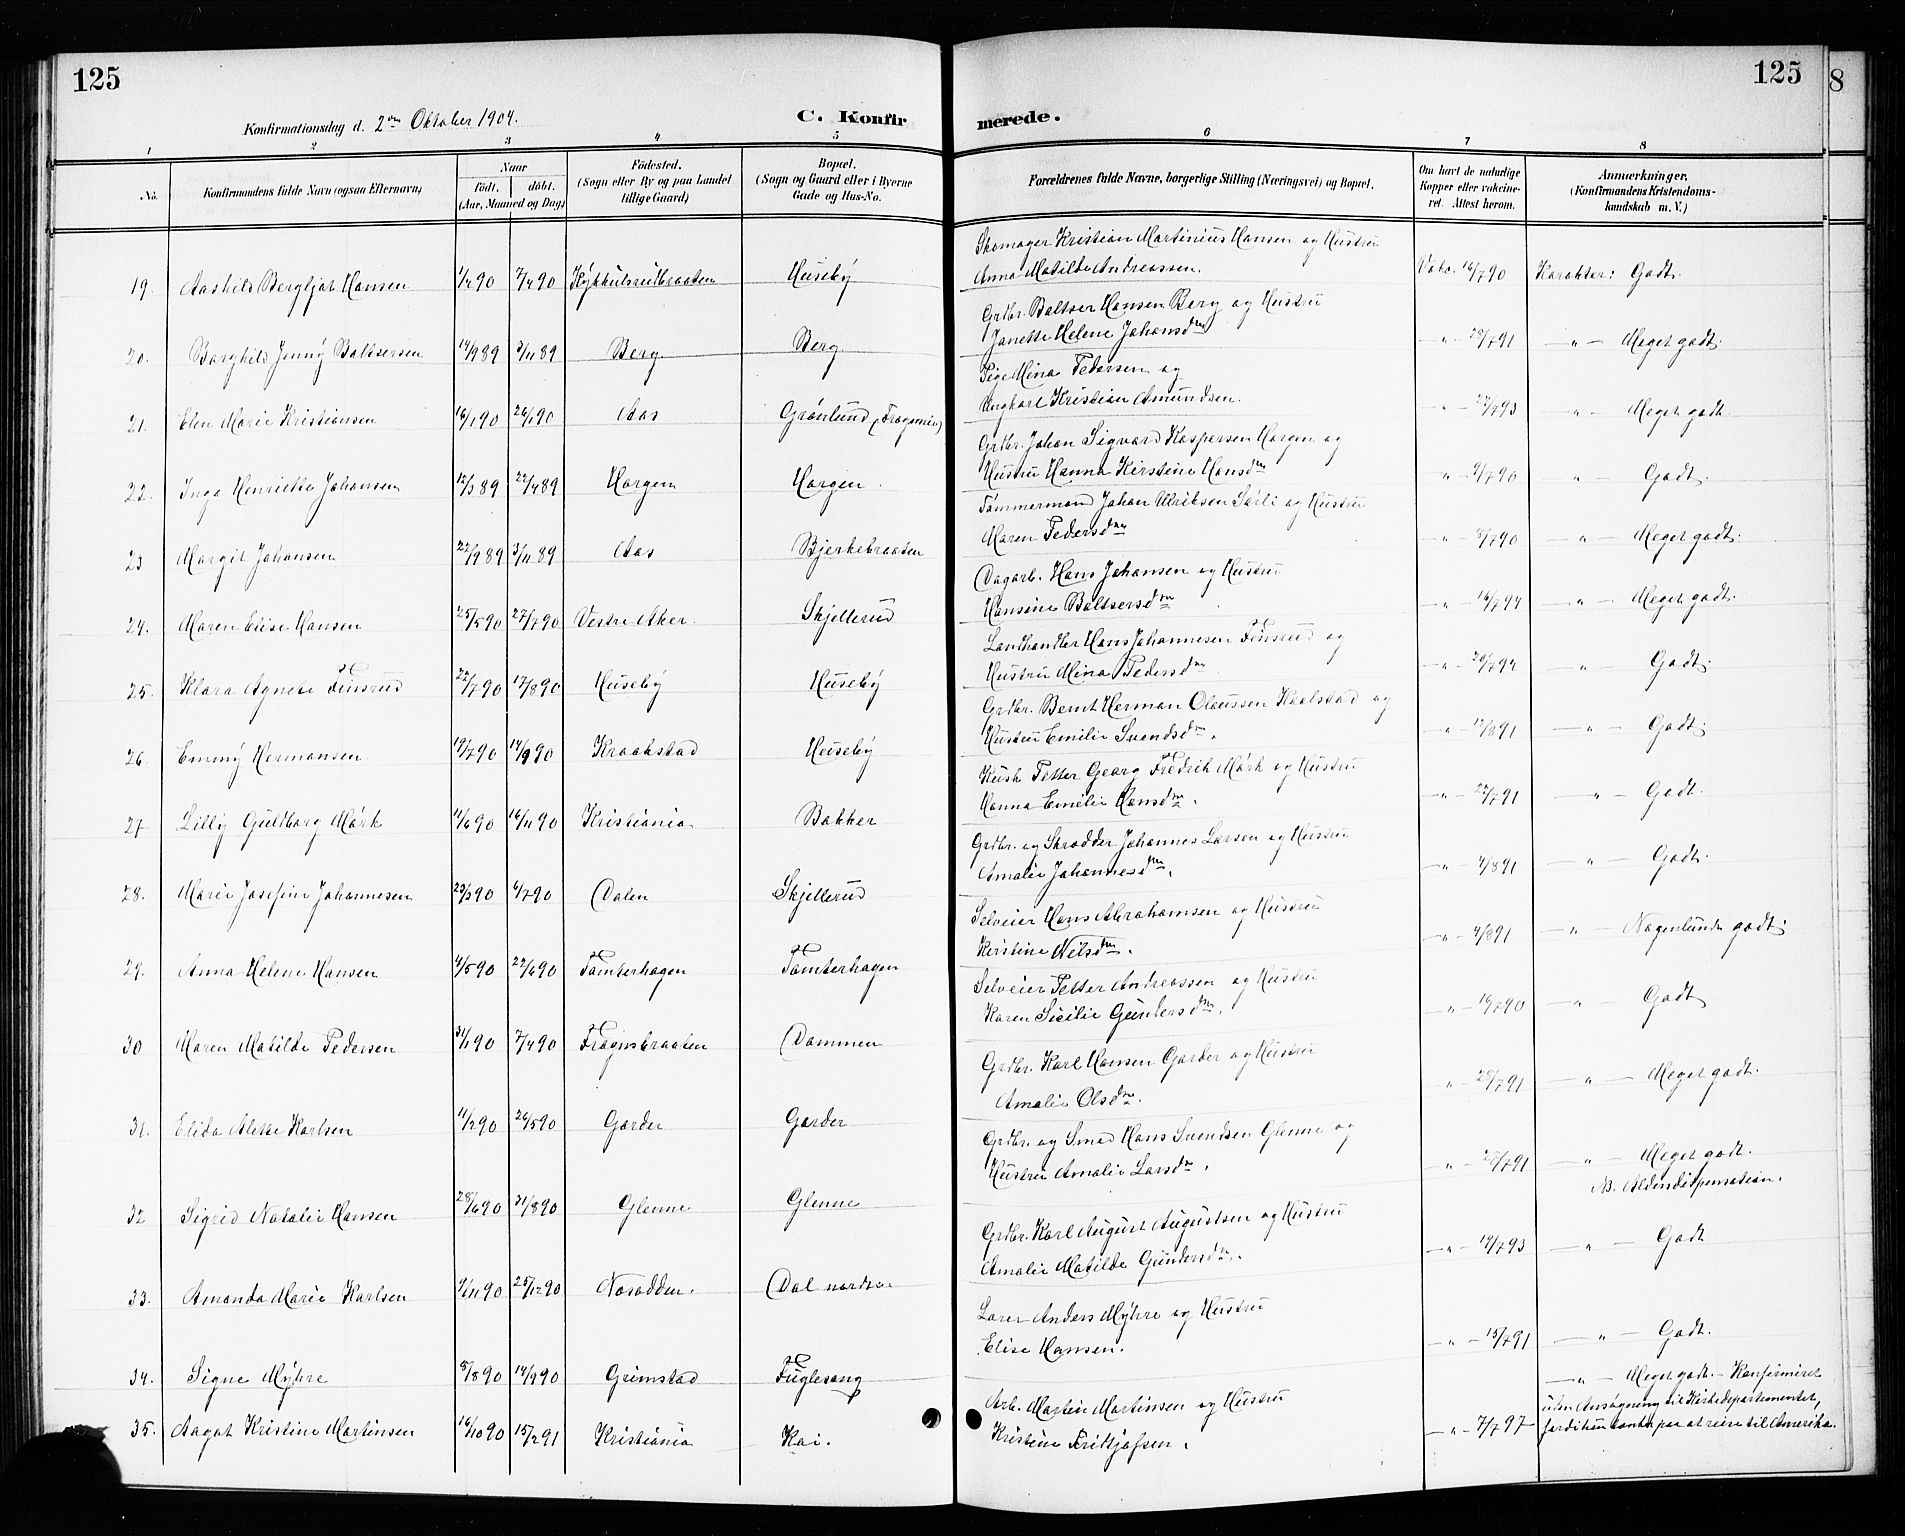 125
125
8
Konfirmationsdag d. 2den Oktober 1904.
C. Konfirmerede.
1 2 3 4 5 6 7 8
No.
Konfirmandens fulde Navn (ogsaa Efternavn)
Naar
født. døbt.
(Aar, Maaned og Dag)
Fødested.
(Sogn eller By og paa Landet tillige Gaard)
Bopæl.
(Sogn og Gaard eller i Byerne Gade og Hus-No.
Forældrenes fulde Navne, borgerlige Stilling (Næringsvei) og Bopæl.
Om havt de naturlige Kopper eller vakcineret. Attest herom.
Anmærkninger.
(Konfirmandens Kristendomskundskab m. V.)
19. Aashild Bergljot Hansen 1/2 90 7/4 90 Kykkulsrudbraaten Huseby Skomager Kristian Martinius Hansen og Hustru Anna Matilde Andreassen. Vakc. 16/7 90 Karakter: Godt.
20. Borghild Jenny Baltsersen 14/9 89 3/11 89 Berg Berg Grdbr. Baltser Hansen Berg og Hustru Janette Helene Johansdtr -"- 28/7 91 -"- Meget godt.
21. Elen Marie Kristiansen 16/1 90 26/1 90 Aas Grønlund (Frogomin) Pige Mina Pedersen og Ungkarl Kristian Amundsen. -"- 27/7 93 " - Meget godt.
22. Inga Henriette Johansen 12/3 89 22/4 89 Horgen Horgen. Grdbr. Johan Sigvard Kaspersen Horgen og Hustru Hanna Kirstine Hansdtr -"- 9/7 90 " - Godt.
23 Margit Johansen 22/9 89 3/11 89 Aas Bjerkebraaten Tømmermand Johan Ulriksen Sørli og Hustru Maren Pedersdtr -"- 8/7 90 -"- Meget godt.
24. Maren Elise Hansen 25/5 90 27/7 90 Vestre Aker. Skjellerud Dagarb. Hans Johansen og Hustru Hansine Baltsersdtr -"- 16/7 94 -"- Meget godt.
25. Klara Agnete Finsrud 22/7 90 17/8 90 Huseby Huseby Landhandler Hans Johannesen Finsrud og Hustru Mina Pedersdtr -"- 20/7 92 -"- Godt.
26. Emmy Hermansen 19/7 90 14/9 90 Kraakstad Huseby Grdbr. Bernt Herman Olaussen Kaalstad og Hustru Emilie Svendsdtr. -"- 12/8 91 -"- Godt.
27 Lilly Guldborg Mørk 11/6 90 16/11 90 Kristiania Bakker Kusk Petter Georg Fredrik Mørk og Hustru Hanna Emilie Hansdtr. -"- 22/7 91 -"- Godt.
28. Marie Josefine Johannesen 23/3 90 6/7 90 Dalen Skjellerud Grdbr. og Skrædder Johannes Larsen og Hustru Amalie Johannesdtr. -"- 4/8 91 -"- Godt.
29. Anna Helene Hansen 4/5 90 22/6 90 Tomterhagen Tomterhagen Selveier Hans Abrahamsen og Hustru Kirstine Nilsdtr. -"- 4/8 91 -"- Nogenlunde godt.
30 Maren Matilde Pedersen 31/1 90 7/4 90 Frognsbraaten Dammen Selveier Petter Andreassen og Hustru Karen Sicilie Gundersdtr. -"- 16/7 90 -"- Godt
31. Elida Alette Karlsen 11/2 90 26/5 90 Garder Garder Grdbr. Karl Hansen Garder og Hustru Amalie Olsdtr. -"- 28/7 91 -"- Meget godt.
32 Sigrid Natalie Hansen 28/6 90 31/8 90 Glenne Glenne Grdbr. og Smed Hans Svendsen Glenne og Hustru Amalie Larsdtr. -"- 27/7 91 -"- Meget godt. NB. Aldersdispensation.
33. Amanda Marie Karlsen 9/11 90 25/12 90 Nesodden. Dal nordre Grdbr. Karl August Augustsen og Hustru Amalie Matilde Gundersdtr. -"- 14/7 93 -"- Godt
34. Signe Myhre 5/8 90 14/9 90 Grimstad Fuglesang Lærer Anders Myhre og Hustru Elise Hansen. -"- 15/7 91 -"- Godt.
35. Aagot Kristine Martinsen 16/10 90 15/2 91 Kristiania Kai. Arb. Martin Martinsen og Hustru Kristine Fritjofsen. -"- 7/7 97 -"- Meget godt. - Konfirmeret uden Ansøgning til Kirkedepartementet, fordi hun venter paa at reise til Amerika.